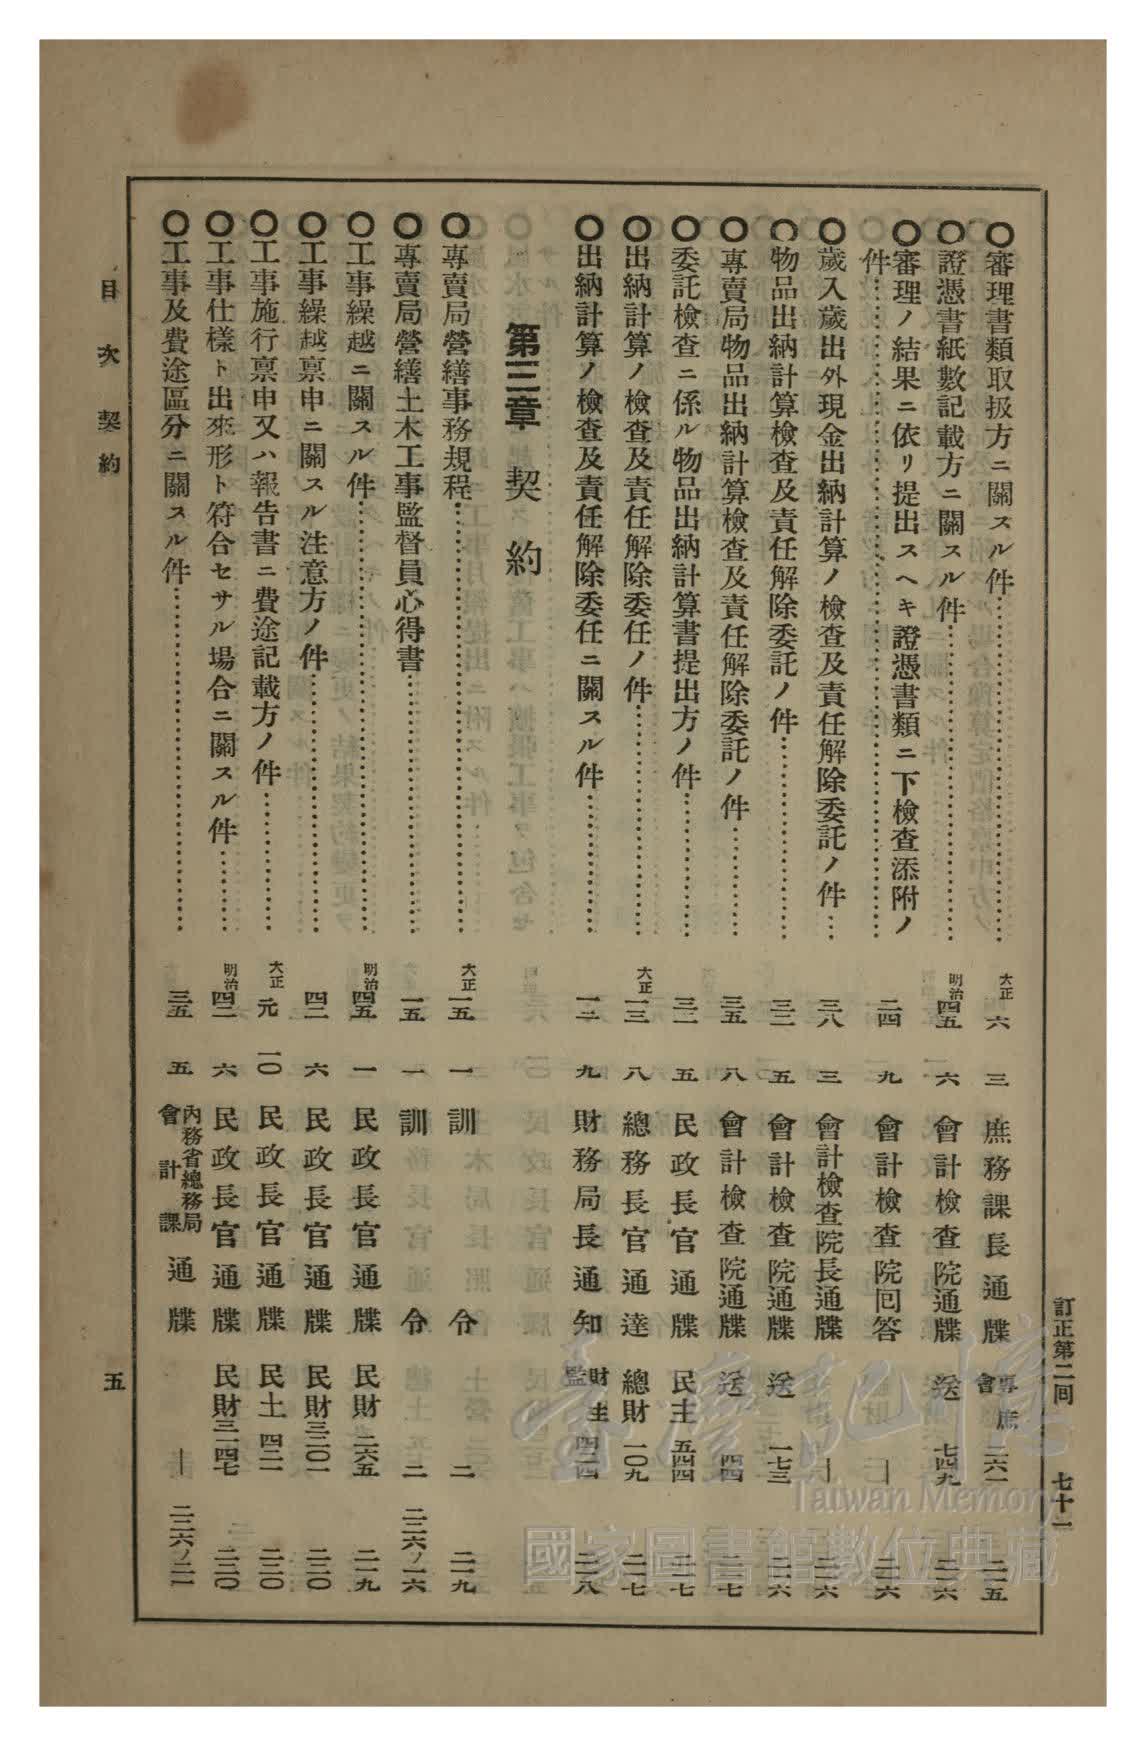 訂正第二回 七十一
〇審理書類取扱方ニ關スル件 大正 六 三 庶務課長通牒 專庶會 二六一 二二五
〇證憑書紙數記載方ニ關スル件 明治 四五 六 會計檢查院通牒 送 七四九 二二六
〇審理ノ結果ニ依リ提出スヘキ證憑書類ニ下檢查添附ノ
件 二四 九 會計檢查院回答 ― 二二六
〇歲入歲出外現金出納計算ノ檢查及責任解除委託ノ件 三八 三 會計檢查院長通牒 ― 二二六
〇物品出納計算檢查及責任解除委託ノ件 三二 五 會計檢查院通牒 送 一七三 二二六
〇專賣局物品出納計算檢查及責任解除委託ノ件 三五 八 會計檢查院通牒 送 四四 二二七
〇委託檢查ニ係ル物品出納計算書提出方ノ件 三二 五 民政長官通牒 民主 五四四 二二七
〇出納計算ノ檢查及責任解除委任ノ件 大正 一三 八 總務長官通達 總財 一〇九 二二七
〇出納計算ノ檢查及責任解除委任ニ關スル件 一二 九 財務局長通知 財主監 四二四 二二八
第三章 契約
〇專賣局營繕事務規程 大正 一五 一 訓令 二 二一九
〇專賣局營繕土木工事監督員心得書 一五 一 訓令 二 二二六ノ一六
〇工事繰越ニ關スル件 明治 四五 一 民政長官通牒 民財 二六五 二一九
〇工事繰越稟申ニ關スル注意方ノ件 四二 六 民政長官通牒 民財 三二〇一 二二〇
〇工事施行稟申又ハ報告書ニ費途記載方ノ件 大正 元 一〇 民政長官通牒 民土 四二一 二二〇
〇工事仕樣ト出來形ト符合セサル場合ニ關スル件 明治 四二 六 民政長官通牒 民財 三一四七 二二〇
〇工事及費途區分ニ關スル件 三五 五 內務省總務局會計課 通牒 ― 二二六ノ二一
目次 契約 五
臺灣記憶
Taiwan Memory
國家圖書館數位典藏